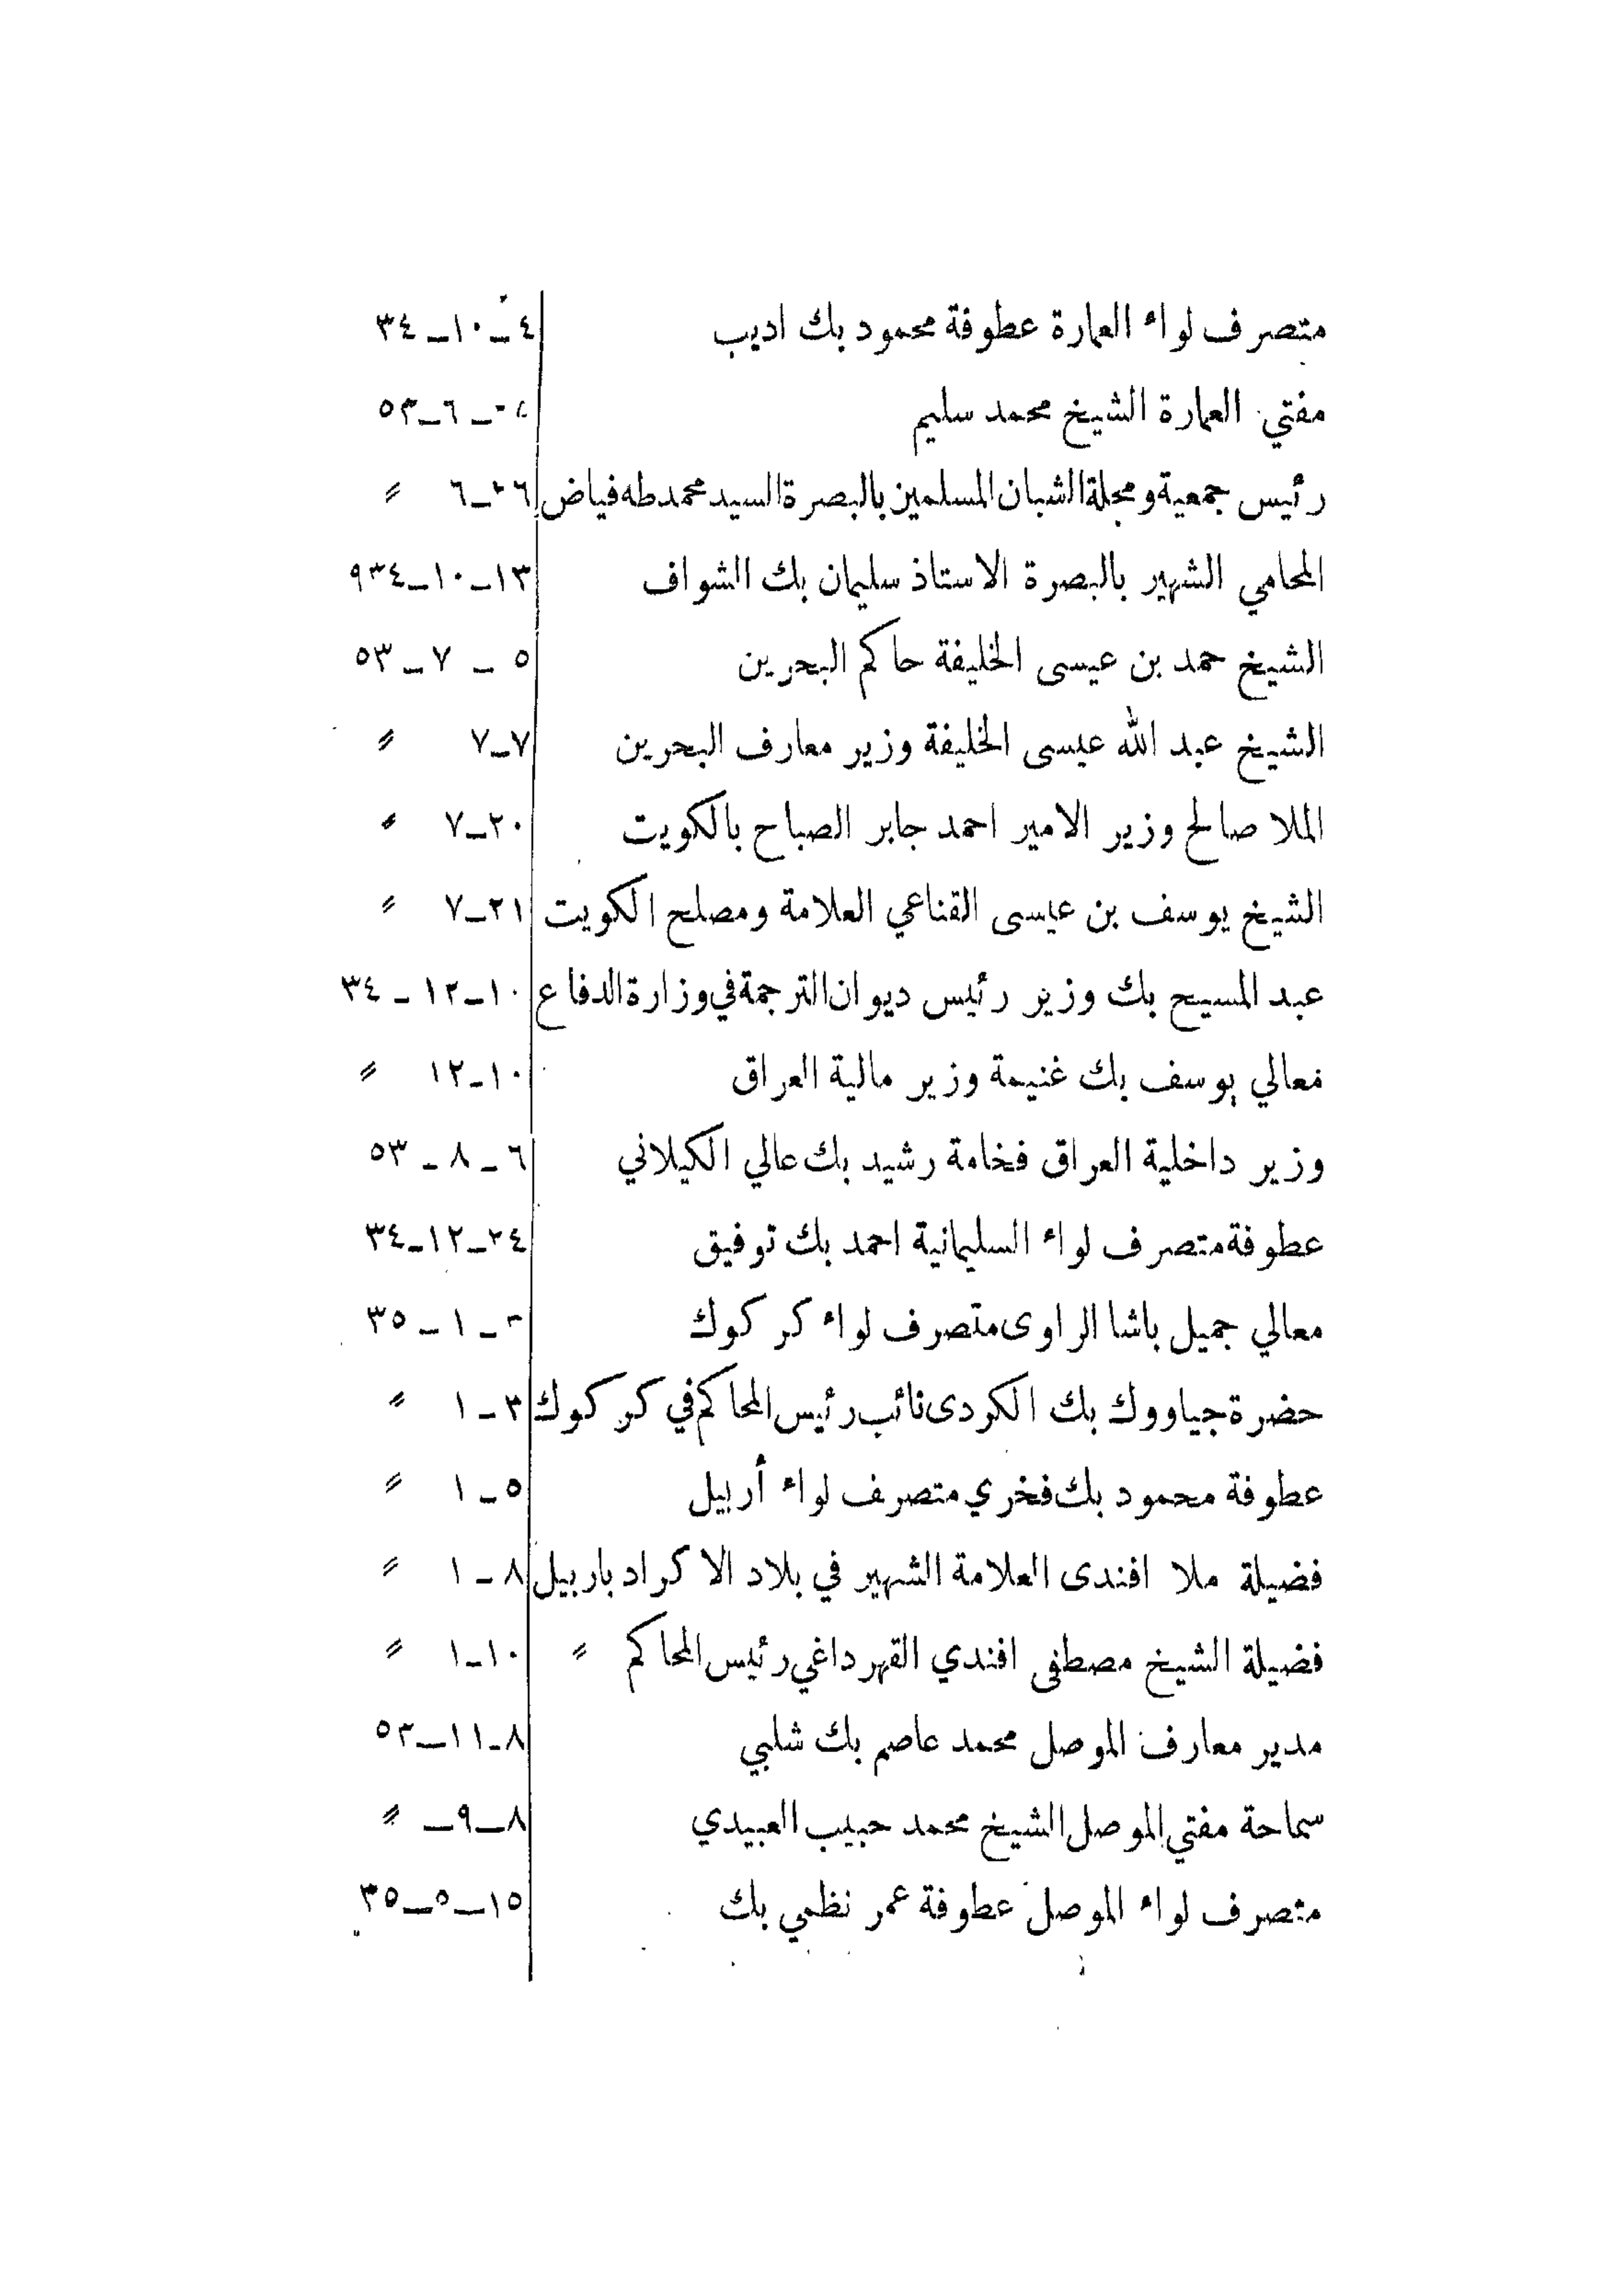 متصرف لواء العمارة عطوفة محمود بك اديب ٤_١٠_٣٤
مفتي العمارة الشيخ محمد سليم _٦_٥٣
رئيس جمعية ومجلة الشبان المسلمين بالبصرة السيد محمد طه فياض ٢٦_٦ 〃
المحامي الشهير بالبصرة الاستاذ سليمان بك الشواف ١٣_١٠_٩٣٤
الشيخ حمد بن عيسى الخليفة حاكم البحرين ٥ _ ٧ _ ٥٣
الشيخ عبد الله عيسى الخليفة وزير معارف البحرين ٧_٧ 〃
الملا صالح وزير الامير احمد جابر الصباح بالكويت ٢٠_٧ 〃
الشيخ يوسف بن عيسى القناعي العلامة ومصلح الكويت ٢١_٧ 〃
عبد المسيح بك وزير رئيس ديوان الترجمة في وزارة الدفاع ١٠_١٢ _ ٣٤
معالي يوسف بك غنيمة وزير مالية العراق ١٠_١٢ 〃
وزير داخلية العراق فخامة رشيد بك عالي الكيلاني ٦ _ ٨ _ ٥٣
عطوفة متصرف لواء السليمانية احمد بك توفيق ٢٤_١٢_٣٤
معالي جميل باشا الراوى متصرف لواء كركوك _ ١ _ ٣٥
حضرة جياووك بك الكردى نائب رئيس المحاكم في كركوك ٣ _ ١ 〃
عطوفة محمود بك فخري متصرف لواء أربيل ٥ _ ١ 〃
فضيلة ملا افندى العلامة الشهير في بلاد الاكراد باربيل ٨ _ ١ 〃
فضيلة الشيخ مصطفى افندي القهرداغي رئيس المحاكم 〃 ١٠_١ 〃
مدير معارف الموصل محمد عاصم بك شلبي ٨_١١_٥٣
سماحة مفتي الموصل الشيخ محمد حبيب العبيدي ٨_٩_ 〃
متصرف لواء الموصل عطوفة عمر نظمي بك ١٥_٥_٣٥